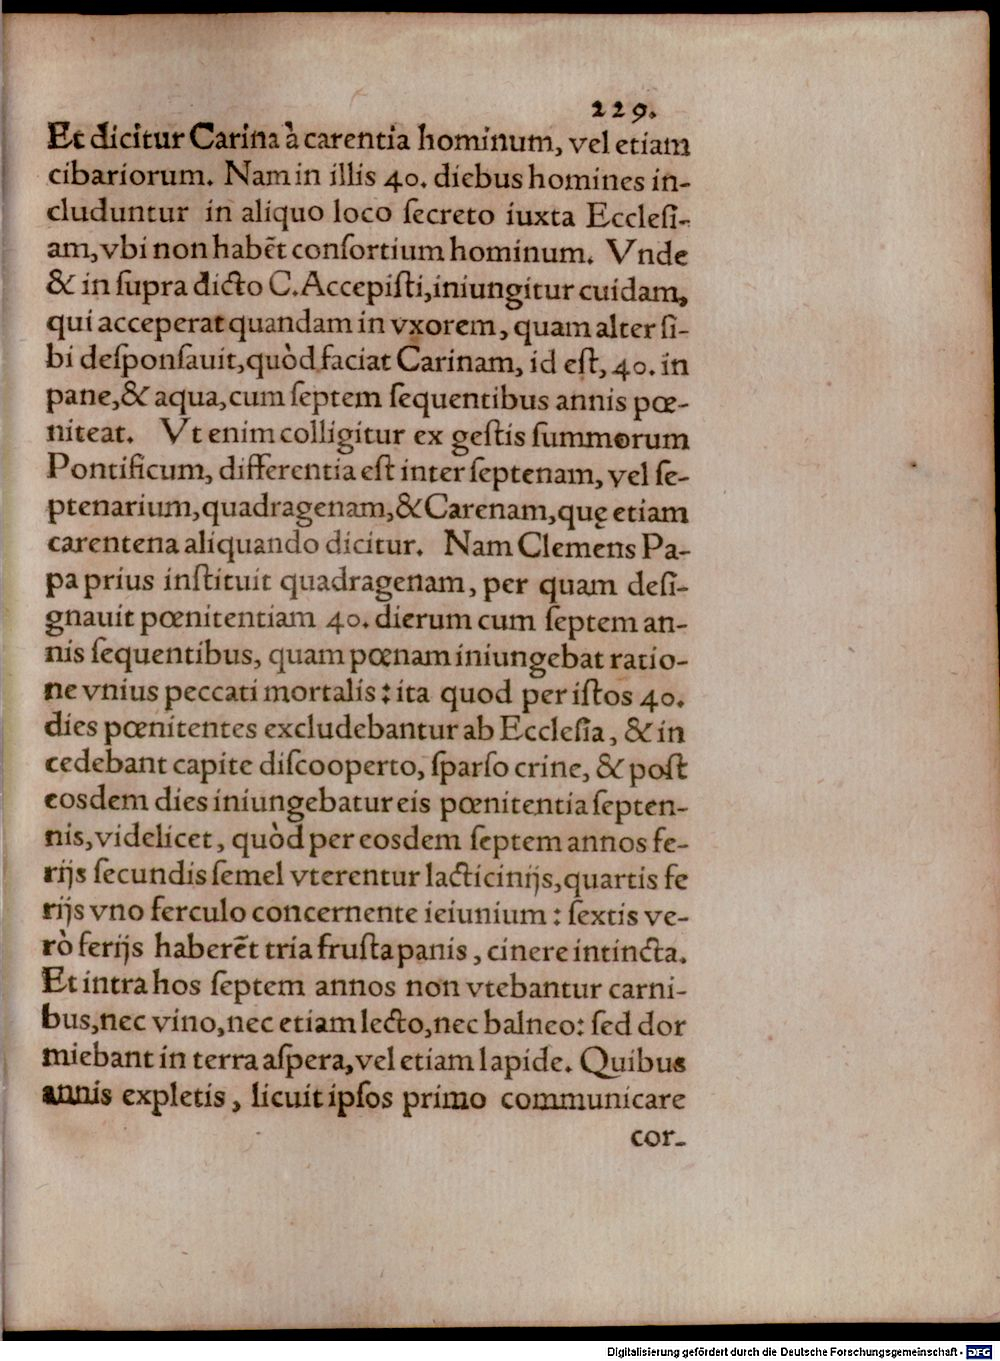 229.
Et dicitur Carina à carentia hominum, vel etiam
cibariorum. Nam in illis 40. diebus homines in-
cluduntur in aliquo loco ſecreto iuxta Eccleſi-
am, vbi non habēt conſortium hominum. Vnde
& in ſupra dicto C. Accepiſti, iniungitur cuidam,
qui acceperat quandam in vxorem, quam alter ſi-
bi deſponſauit, quòd faciat Carinam, id eſt, 40. in
pane, & aqua, cum ſeptem ſequentibus annis pœ-
niteat. Vt enim colligitur ex geſtis ſummorum
Pontificum, differentia eſt inter ſeptenam, vel ſe-
ptenarium, quadragenam, & Carenam, quę etiam
carentena aliquando dicitur. Nam Clemens Pa-
pa prius inſtituit quadragenam, per quam deſi-
gnauit pœnitentiam 40. dierum cum ſeptem an-
nis ſequentibus, quam pœnam iniungebat ratio-
ne vnius peccati mortalis: ita quod per iſtos 40.
dies pœnitentes excludebantur ab Eccleſia, & in
cedebant capite diſcooperto, ſparſo crine, & poſt
eosdem dies iniungebatur eis pœnitentia ſepten-
nis, videlicet, quòd per eosdem ſeptem annos fe-
rijs ſecundis ſemel vterentur lacticinijs, quartis fe
rijs vno ferculo concernente ieiunium: ſextis ve-
rò ferijs haberēt tria fruſta panis, cinere intincta.
Et intra hos ſeptem annos non vtebantur carni-
bus, nec vino, nec etiam lecto, nec balneo: ſed dor
miebant in terra aſpera, vel etiam lapide. Quibus
annis expletis, licuit ipſos primo communicare
cor-
Digitalisierung gefördert durch die Deutsche Forschungsgemeinschaft - DFG